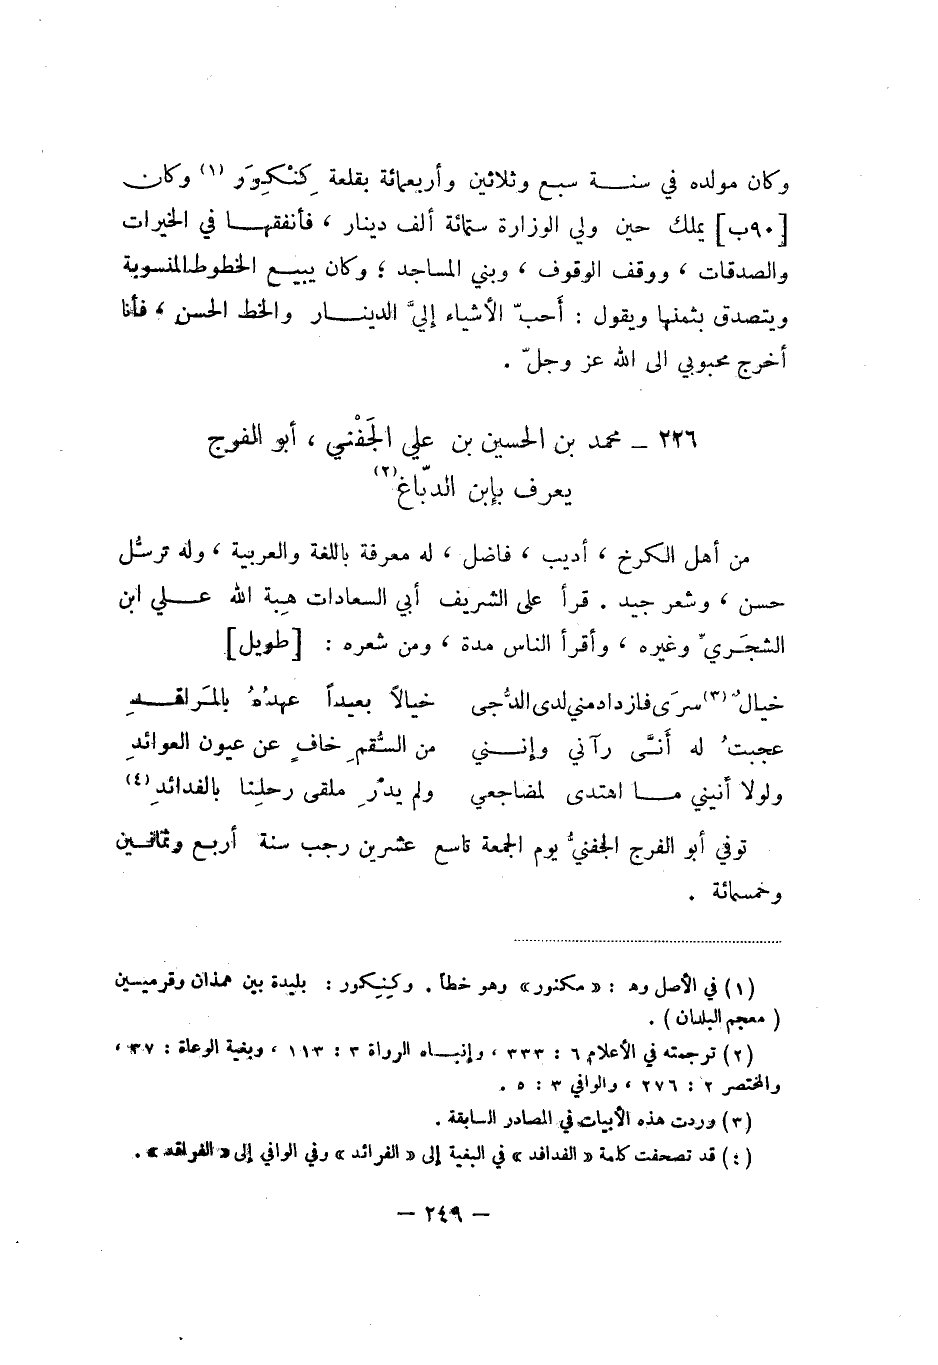 وكان مولده في سنـــة سبع وثلاثين وأربعمائة بقلعة كَنْكِوَر (١) وكان
[٩٠ب] يملك حين ولي الوزارة ستمائة ألف دينار ، فأنفقهـــا في الخيرات
والصدقات ، ووقف الوقوف ، وبنى المساجد ؛ وكان يبيـــع الخطوط المنسوبة
ويتصدق بثمنها ويقول : أَحبّ الأشياء إليَّ الدينـــار والخط الحسن ، فأنا
أخرج محبوبي الى الله عز وجلّ .
٢٢٦ ــ محمد بن الحسين بن علي الجَفْني ، أبو الفرج
يعرف بإبن الدبّاغ (٢)
من أهل الكرخ ، أديب ، فاضل ، له معرفة باللغة والعربية ، وله ترسُّل
حسن ، وشعر جيد . قرأ على الشريف أبي السعادات هبة الله علـــي ابن
الشجَـري وغيره ، وأقرأ الناس مدة ، ومن شعره : [طويل]
خيالٌ (٣) سرَى فازداد مني لدى الدُّجى خيالاً بعيداً عهدُهُ بالمَراقـــدِ
عجبتُ له أَنَّى رآني وإنـــني من السُّقمِ خافٍ عن عيون العوائدِ
ولولا أنيني مـــا اهتدى لمضاجعي ولم يدْرِ ملقى رحلِنا بالفدائدِ (٤)
توفي أبو الفرج الجفنيُّ يوم الجمعة تاسع عشرين رجب سنة أربع وثمانـين
وخمسمائة .
(١) في الأصل وهـ : « مكنور» وهو خطأ . وكَنِكور : بليدة بين همذان وقرميسين
( معجم البلدان ) .
(٢) ترجمته في الأعلام ٦ : ٣٣٣ ، وإنبـــاه الرواة ٣ : ١١٣ ، وبغية الوعاة : ٣٧ ،
والمختصر ٢ : ٢٧٦ ، والوافي ٣ : ٥ .
(٣) وردت هذه الأبيات في المصادر السابقة .
(٤) قد تصحفت كلمة « الفدافد » في البغية إلى « الفرائد » وفي الوافي إلى « الفراقد » .
— ٢٤٩ —